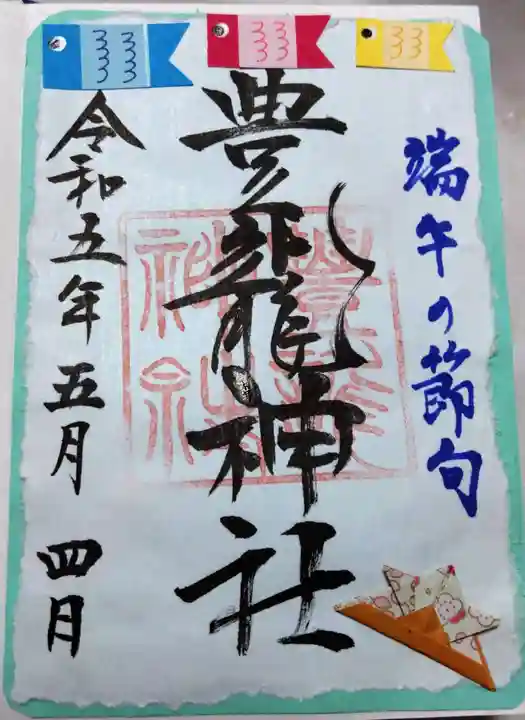 端午の節句
豊龍神社
令和五年五月四日